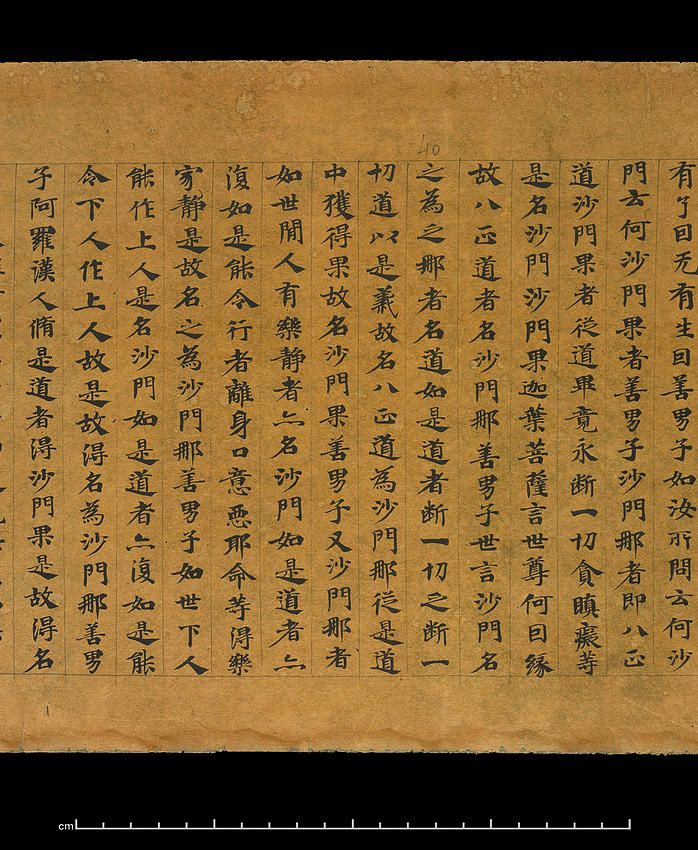 40
有了因无有生因善男子如汝所問云何沙
門云何沙門果者善男子沙門那者即八正
道沙門果者從道畢竟永断一切貪瞋癡等
是名沙門沙門果迦葉菩薩言世尊何因緣
故八正道者名沙門那善男子世言沙門名
之為乏那者名道如是道者断一切乏断一
切道以是義故名八正道為沙門那從是道
中獲得果故名沙門果善男子又沙門那者
如世間人有樂静者亦名沙門如是道者亦
復如是能令行者離身口意惡耶命等得樂
寂静是故名之為沙門那善男子如世下人
能作上人是名沙門如是道者亦復如是能
令下人作上人故是故得名為沙門那善男
子阿羅漢人脩是道者得沙門果是故得名
cm